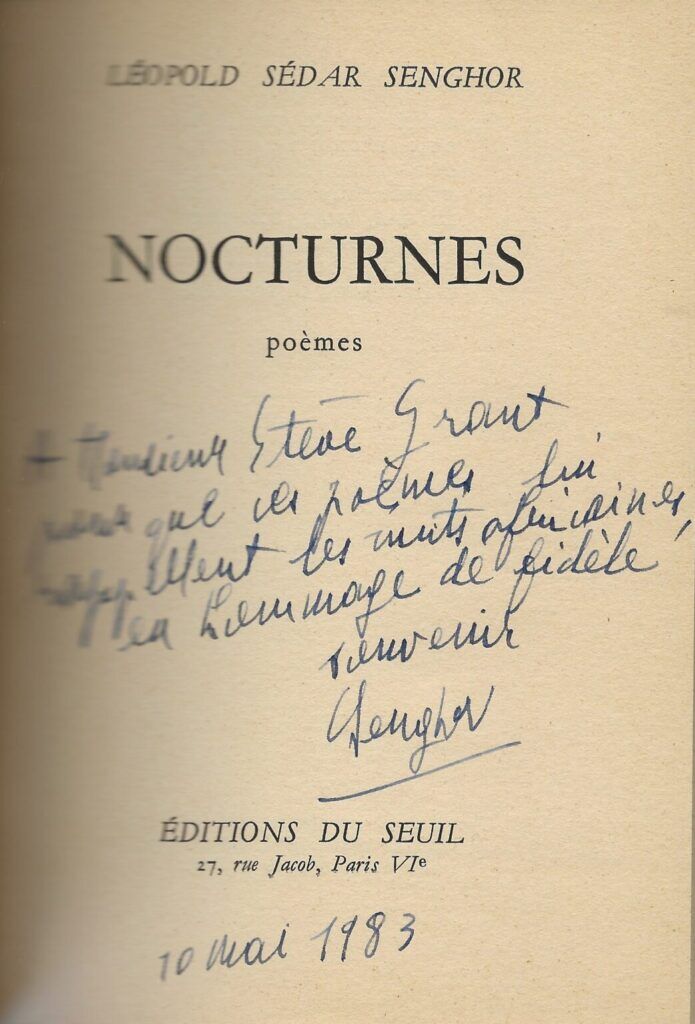 LÉOPOLD SÉDAR SENGHOR
NOCTURNES
poèmes
A Monsieur Stève Grant
pour que ces poèmes lui
rappellent les nuits africaines,
en hommage de fidèle
souvenir
Senghor
ÉDITIONS DU SEUIL
27, rue Jacob, Paris VIe
10 mai 1983